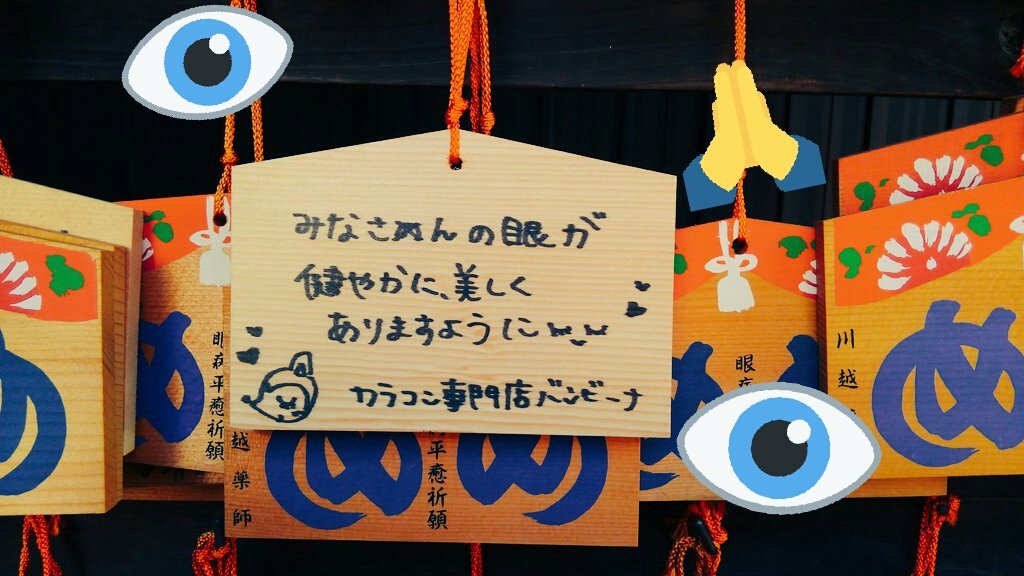 みなさぬんの眼が
健やかに、美しく
ありますように
カラコン専門店バンビーナ
平癒祈願
越薬師
平癒祈願
め
め
眼
川越
め